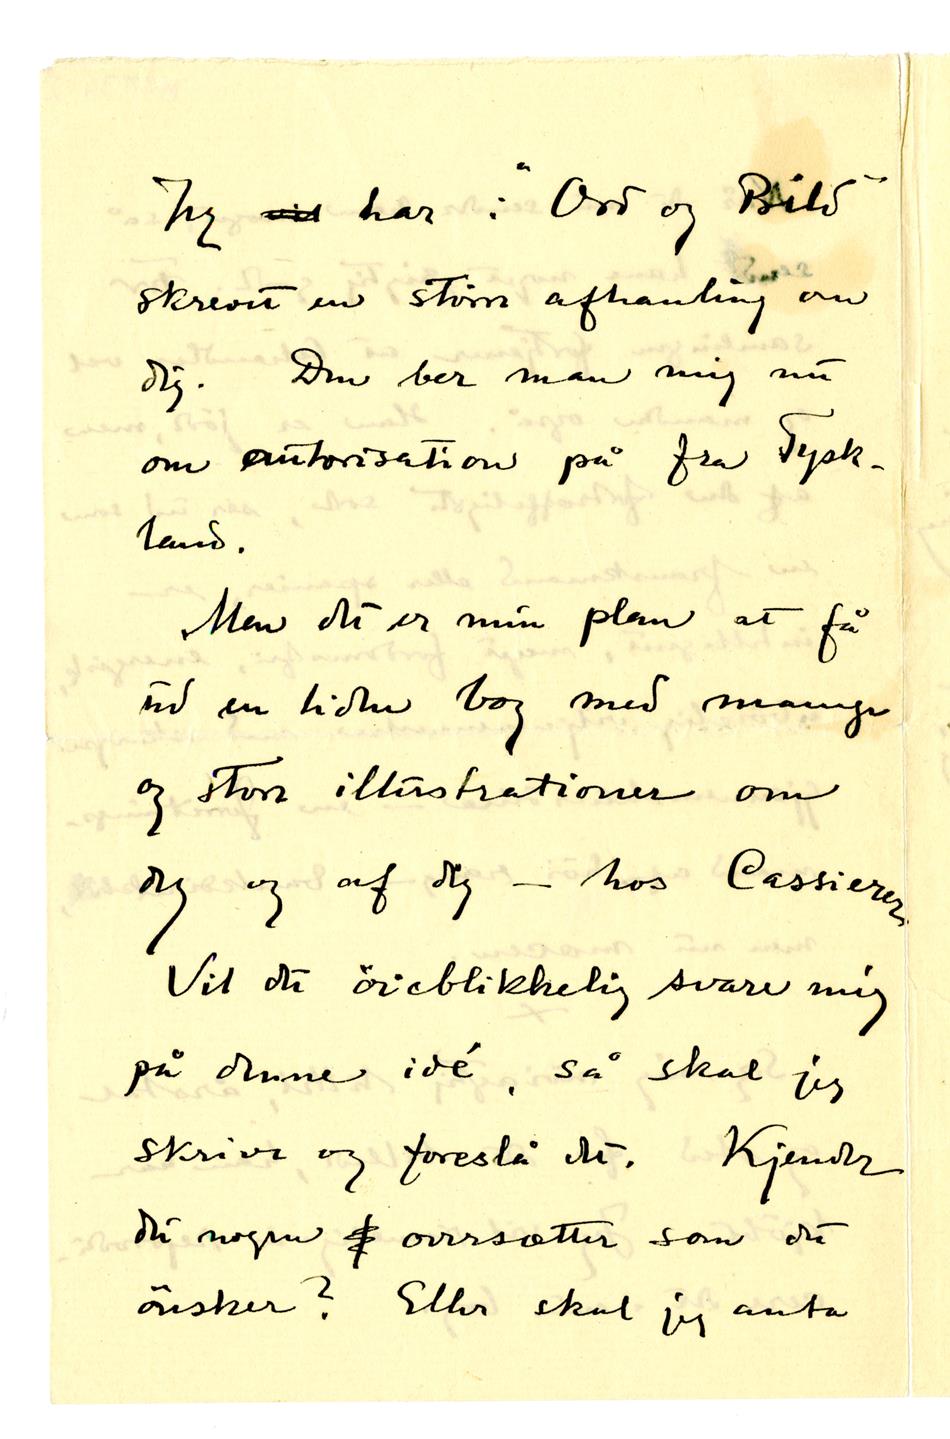 Jeg vil har i "Ord og Bild"
skrevet en större afhanling om
dig. Den ber man mig nu
om autorisation på fra Tysk-
land.
Men det er min plan at få
ud en liden bog med mange
og store illustrationer om
dig og af dig — hos Cassierer.
Vil du öieblikkelig svare mig
på denne idé, så skal jeg
skrive og foreslå det. Kjender
du nogen oversætter som du
önsker? Eller skal jeg anta